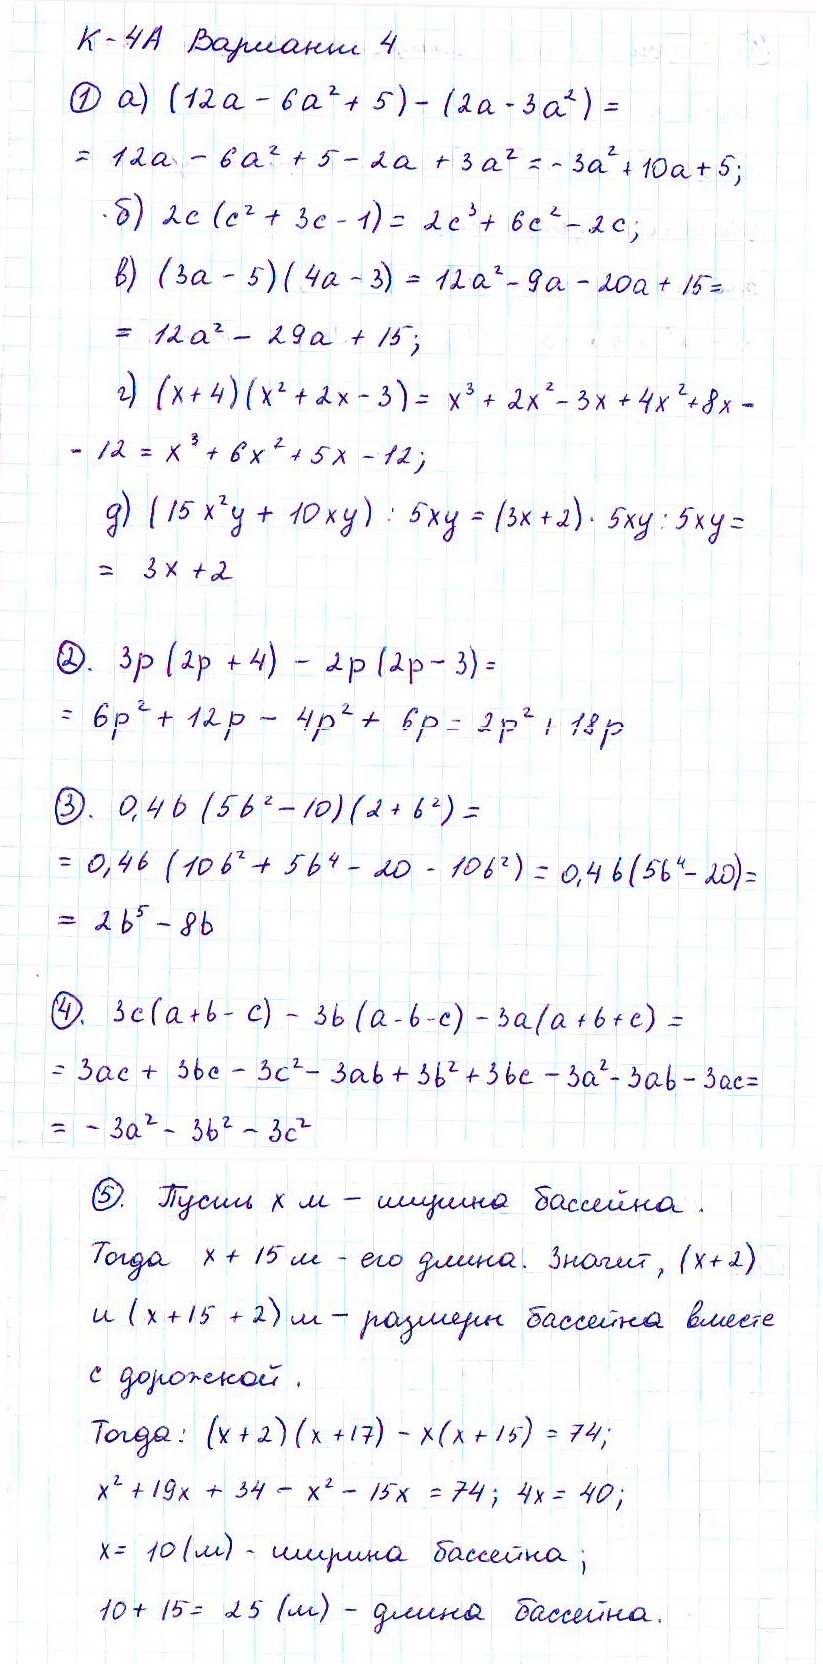 К-4А Вариант 4
① а) (12a - 6a² + 5) - (2a - 3a²) =
= 12a - 6a² + 5 - 2a + 3a² = -3a² + 10a + 5;
б) 2c (c² + 3c - 1) = 2c³ + 6c² - 2c;
в) (3a - 5)(4a - 3) = 12a² - 9a - 20a + 15 =
= 12a² - 29a + 15;
г) (x+4)(x² + 2x - 3) = x³ + 2x² - 3x + 4x² + 8x -
- 12 = x³ + 6x² + 5x - 12;
д) (15x²y + 10xy) : 5xy = (3x+2) · 5xy : 5xy =
= 3x + 2
②. 3p (2p + 4) - 2p (2p - 3) =
= 6p² + 12p - 4p² + 6p = 2p² + 18p
③. 0,4b (5b² - 10)(2 + b²) =
= 0,4b (10b² + 5b⁴ - 20 - 10b²) = 0,4b(5b⁴ - 20) =
= 2b⁵ - 8b
④. 3c(a+b-c) - 3b(a-b-c) - 3a(a+b+c) =
= 3ac + 3bc - 3c² - 3ab + 3b² + 3bc - 3a² - 3ab - 3ac =
= - 3a² - 3b² - 3c²
⑤. Пусть x м - ширина бассейна.
Тогда x + 15 м - его длина. Значит, (x+2)
и (x+15+2) м - размеры бассейна вместе
с дорожкой.
Тогда: (x+2)(x+17) - x(x+15) = 74;
x² + 19x + 34 - x² - 15x = 74; 4x = 40;
x = 10 (м) - ширина бассейна;
10 + 15 = 25 (м) - длина бассейна.